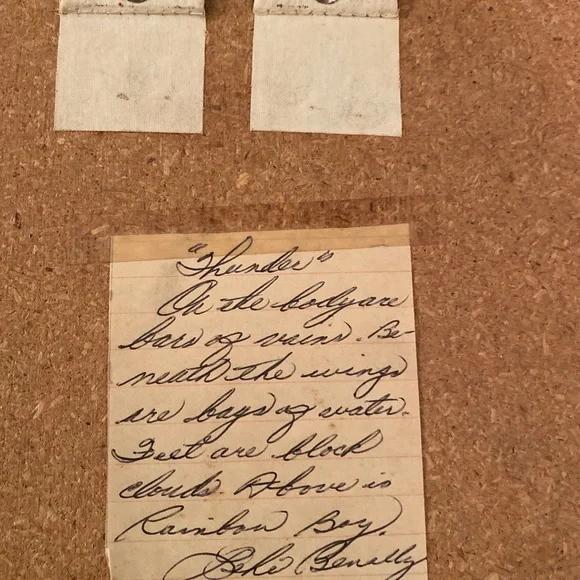 "Thunder"
On the body are
bars of rains. Be-
neath the wings
are bags of water.
Feet are black
clouds. Above is
Rainbow Boy.
Benally